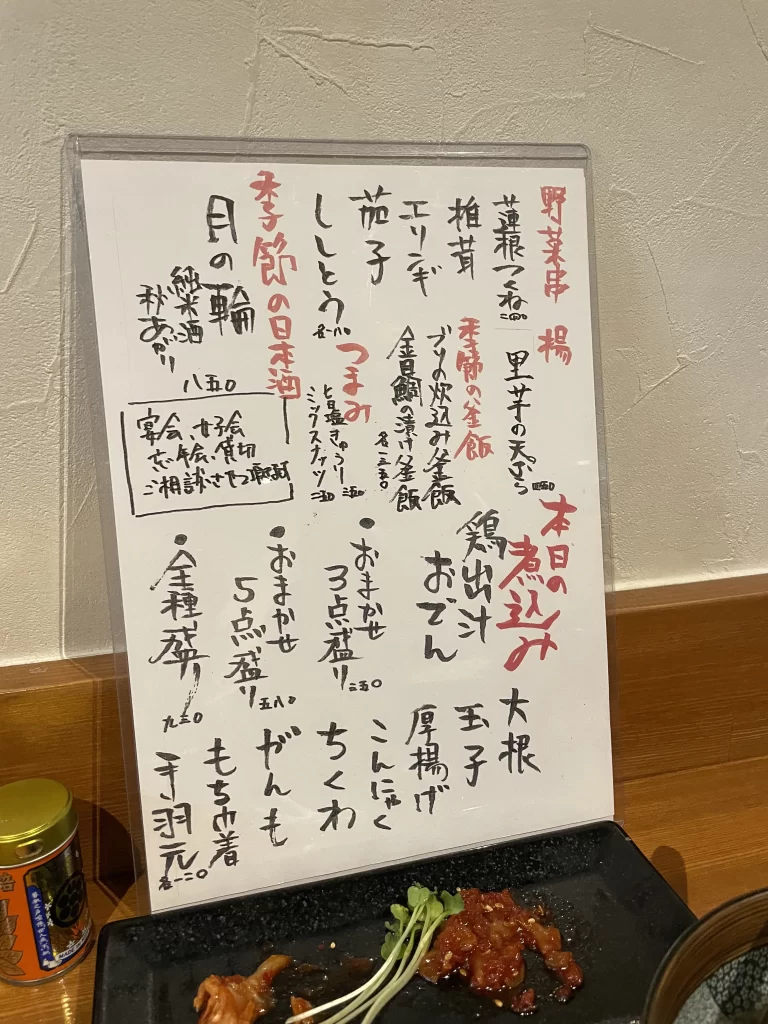 野菜串 揚
蓮根つくね 二四〇
椎茸
エリンギ
茄子
ししとう 各一八〇
里芋の天ぷら 四五〇
季節の釜飯
ブリの炊込み釜飯
金目鯛の漬け釜飯
各一三五〇
つまみ
旨塩きゅうり 三五〇
ミックスナッツ 二五〇
季節の日本酒
月の輪
純米酒
秋あがり
八五〇
宴会、女子会
忘年会、貸切
ご相談させて頂きます
本日の
煮込み
鶏出汁
おでん
・おまかせ
3点盛り 三五〇
・おまかせ
5点盛り 五八〇
・全種盛り 九二〇
大根
玉子
厚揚げ
こんにゃく
ちくわ
がんも
もち巾着
手羽元 各一二〇